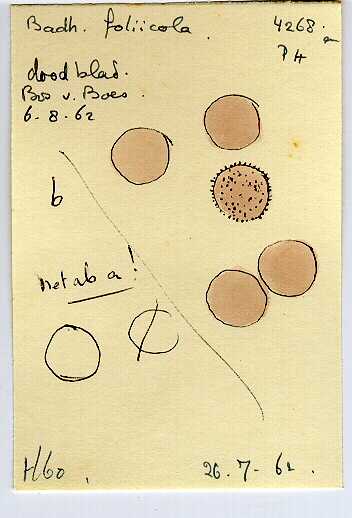 Badh. foliicola. 4268.
P4
dood blad.
Bos v. Boes.
6-8-62
b
net als a!
H60. 26-7-62.